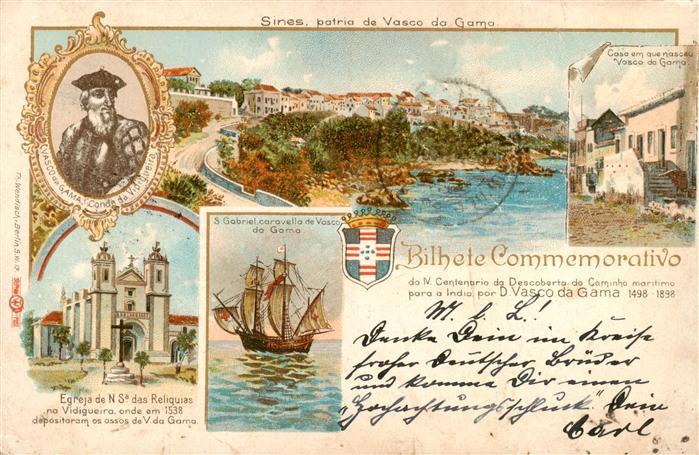 Sines, patria de Vasco da Gama.
Casa em que nasceu
Vasco da Gama.
VASCO da GAMA, Conde da Vidigueira
Th. Wendisch, Berlin S.W. 19.
S. Gabriel, caravella de Vasco
da Gama
Bilhete Commemorativo
do IV. Centenario da Descoberta do Caminho maritimo
para a India, por D. Vasco da Gama 1498-1898
Egreja de N Sª das Reliquias
na Vidigueira, onde em 1538
depositaram os ossos de V. da Gama.
M. l. L.!
Denke Dein im Kreise
froher Deutscher Brüder
und komme Dir einen
"Hochachtungsschluck". Dein
Carl